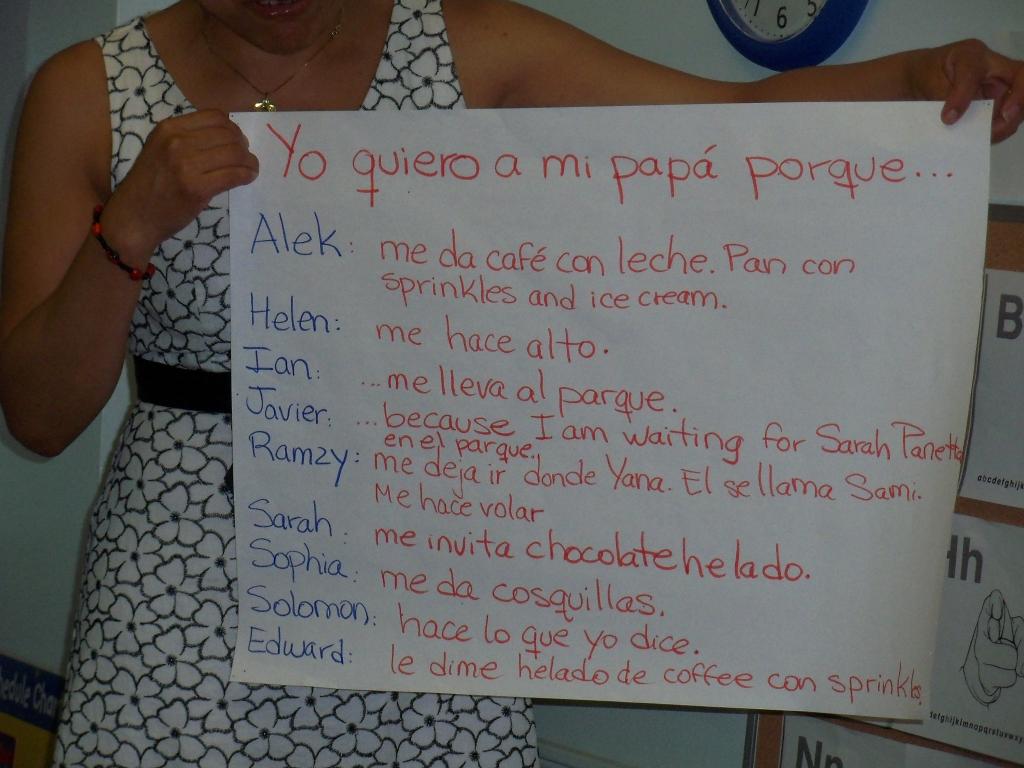 Yo quiero a mi papá porque...
Alek: me da café con leche. Pan con
sprinkles and ice cream.
Helen: me hace alto.
Ian: ...me lleva al parque.
Javier: ...because I am waiting for Sarah Panetta
en el parque.
Ramzy: me deja ir donde Yana. El se llama Sami.
Me hace volar
Sarah: me invita chocolate helado.
Sophia: me da cosquillas.
Solomon: hace lo que yo dice.
Edward: le dime helado de coffee con sprinkles
5
6
7
B
abcdefghijk
Hh
defghijklmnopqrstuvwxy
Nn